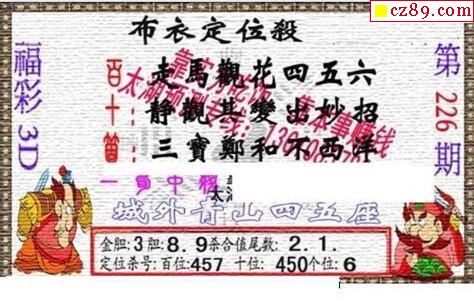 cz89.com
布衣定位殺
福彩3D
第226期
百：走馬觀花四五六
十：靜觀其變出妙招
個：三寶鄭和不西洋
城外青山四五座
金胆:3胆:8.9杀合值尾数:2.1.
定位杀号:百位:457 十位:450个位:6